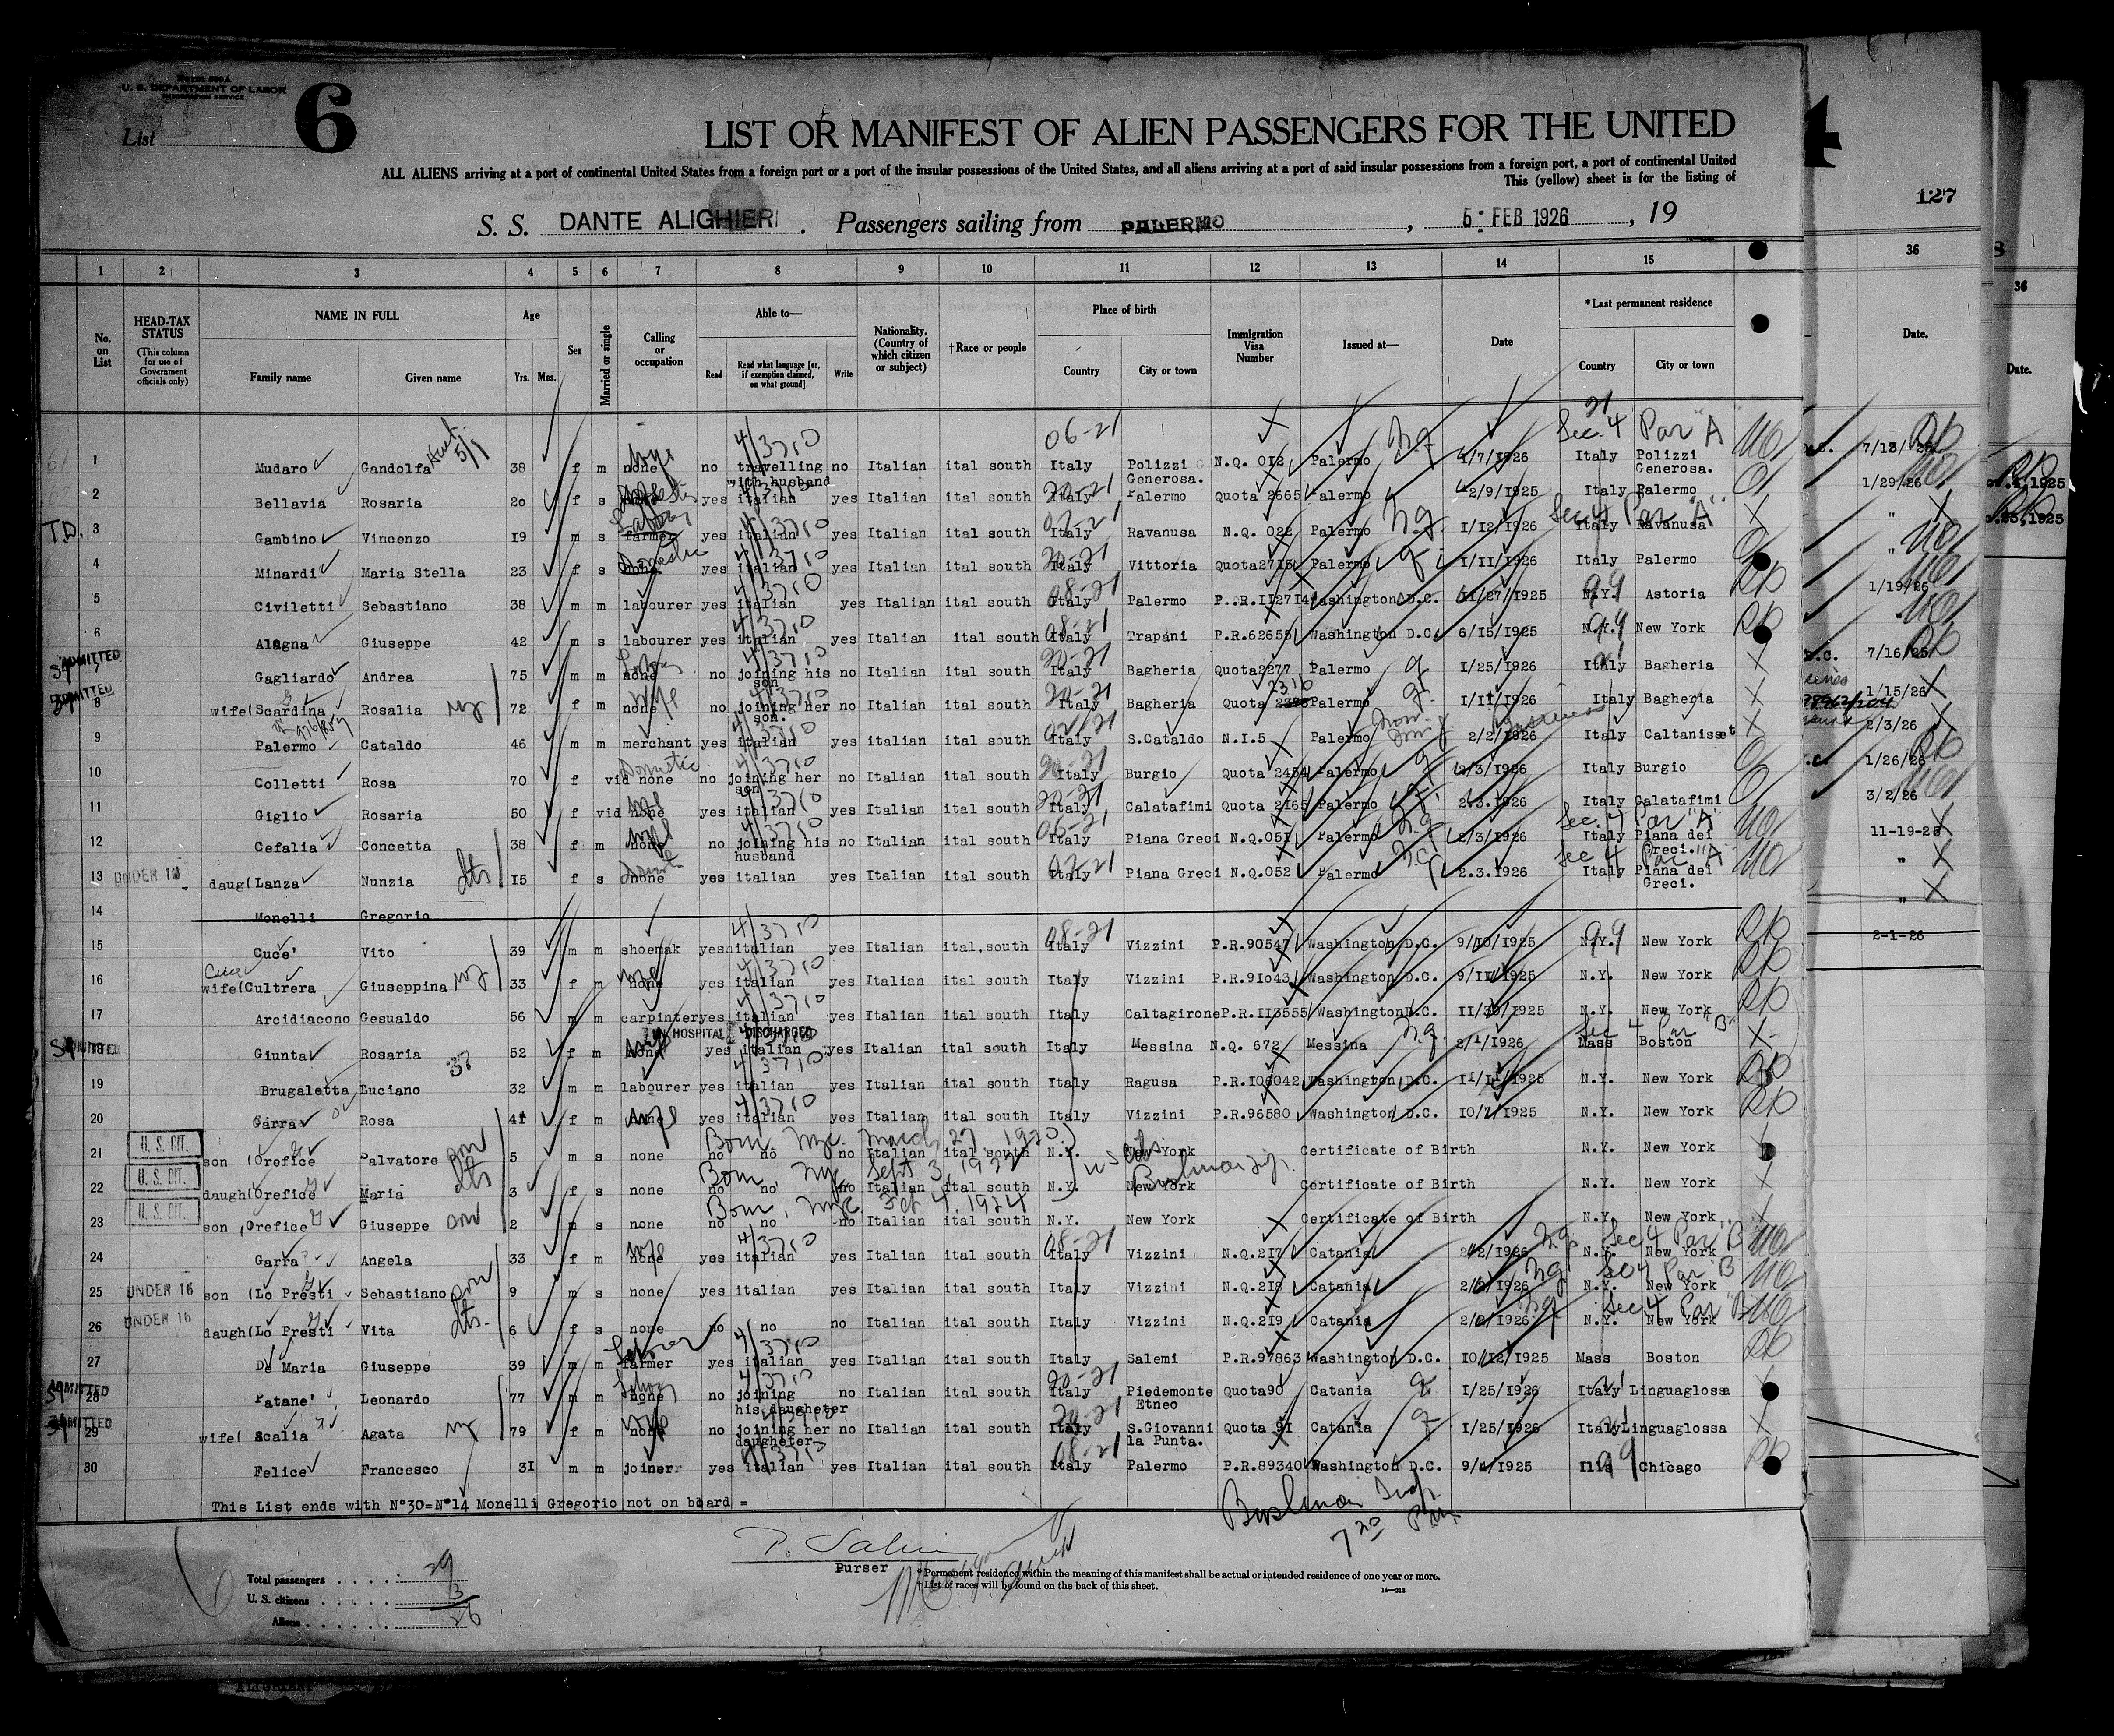 Form 500A
U. S. DEPARTMENT OF LABOR
IMMIGRATION SERVICE
List 6
LIST OR MANIFEST OF ALIEN PASSENGERS FOR THE UNITED
ALL ALIENS arriving at a port of continental United States from a foreign port or a port of the insular possessions of the United States, and all aliens arriving at a port of said insular possessions from a foreign port, a port of continental United
This (yellow) sheet is for the listing of
127
S. S. DANTE ALIGHIERI. Passengers sailing from PALERMO, 5 FEB 1926, 19
1 2 3 4 5 6 7 8 9 10 11 12 13 14 15 36
No. on List
HEAD-TAX STATUS (This column for use of Government officials only)
NAME IN FULL Family name Given name
Age Yrs. Mos.
Sex
Married or single
Calling or occupation
Able to— Read Read what language [or, if exemption claimed, on what ground] Write
Nationality. (Country of which citizen or subject)
†Race or people
Place of birth Country City or town
Immigration Visa Number
Issued at—
Date
*Last permanent residence Country City or town
Date.
Sec. 4 Par "A"
1 Mudaro Gandolfa 38 f m none wife no travelling with husband no Italian ital south Italy Polizzi Generosa. N.Q. 012 Palermo 1/7/1926 Italy Polizzi Generosa.
2 Bellavia Rosaria 20 f s yes italian yes Italian ital south Italy Palermo Quota 2665 Palermo 12/9/1925 Italy Palermo
T.D. 3 Gambino Vincenzo 19 m s farmer yes italian yes Italian ital south Italy Ravanusa N.Q. 022 Palermo 1/12/1926 Sec 4 Par "A" Italy Ravanusa
4 Minardi Maria Stella 23 f s none Domestic yes italian yes Italian ital south Italy Vittoria Quota2715 Palermo 1/11/1926 Italy Palermo
5 Civiletti Sebastiano 38 m m labourer yes italian yes Italian ital south Italy Palermo P.R.112714 Washington D.C. 11/27/1925 N.Y. Astoria
6 Alagna Giuseppe 42 m s labourer yes italian yes Italian ital south Italy Trapani P.R.62655 Washington D.C. 6/15/1925 N.Y. New York
ADMITTED 7 Gagliardo Andrea 75 m m none no joining his son no Italian ital south Italy Bagheria Quota2277 Palermo 1/25/1926 Italy Bagheria
ADMITTED 8 wife( Scardina Rosalia 72 f m none wife no joining her son. no Italian ital south Italy Bagheria Quota 2316 Palermo 1/11/1926 Italy Bagheria
9 Palermo Cataldo 46 m m merchant yes italian yes italian ital south Italy S.Cataldo N.I.5 Palermo 2/2/1926 Italy Caltaniset
10 Colletti Rosa 70 f vid none Domestic no joining her son no Italian ital south Italy Burgio Quota 2454 Palermo 2/3/1926 Italy Burgio
11 Giglio Rosaria 50 f vid none yes italian yes Italian ital south Italy Calatafimi Quota 2165 Palermo 2.3.1926 Italy Calatafimi
Sec. 4 Par "A"
12 Cefalia Concetta 38 f m none wife no joining his husband no Italian ital south Italy Piana Greci N.Q.051 Palermo 2/3/1926 Italy Piana dei Greci.
Sec 4 Par "A"
UNDER 16 13 daug( Lanza Nunzia 15 f s none yes italian yes Italian ital south Italy Piana Greci N.Q.052 Palermo 2.3.1926 Italy Piana dei Greci.
14 Monelli Gregorio
15 Cuce' Vito 39 m m shoemak yes italian yes Italian ital.south Italy Vizzini P.R.90547 Washington D.C. 9/10/1925 N.Y. New York
Cuce
16 wife( Cultrera Giuseppina 33 f m none wife yes italian yes Italian ital south Italy Vizzini P.R.91043 Washington D.C. 9/11/1925 N.Y. New York
17 Arcidiacono Gesualdo 56 m m carpinter yes italian yes Italian ital south Italy Caltagirone P.R.113555 Washington D.C. 11/30/1925 N.Y. New York
IN HOSPITAL DISCHARGED
ADMITTED 18 Giunta Rosaria 52 f m none wife yes italian yes Italian ital south Italy Messina N.Q. 672 Messina 2/1/1926 Sec 4 Par B Mass Boston
19 Brugaletta Luciano 32 m m labourer yes italian yes Italian ital south Italy Ragusa P.R.106042 Washington D.C. N.Y. New York
20 Garra Rosa 41 f m none wife yes italian yes Italian ital south Italy Vizzini P.R.96580 Washington D.C. 10/1/1925 N.Y. New York
Born. Nyc. March 27, 1920
U. S. CIT. 21 son (Orefice Palvatore 5 m s none no no no Italian ital south N.Y. New York Certificate of Birth N.Y. New York
Born, Nyc, Sept 3, 1922
U. S. CIT. 22 daugh(Orefice Maria 3 f s none no no no Italian ital south N.Y. New York Certificate of Birth N.Y. New York
Born, Nyc Oct 4, 1924
U. S. CIT. 23 son ,Orefice Giuseppe 2 m s none no no no Italian ital south N.Y. New York Certificate of Birth N.Y. New York
24 Garra Angela 33 f m none wife yes italian yes Italian ital south Italy Vizzini N.Q.217 Catania 2/2/1926 Sec 4 Par B N.Y. New York
UNDER 16 25 son (Lo Presti Sebastiano 9 m s none yes italian yes Italian ital south Italy Vizzini N.Q.218 Catania 2/2/1926 Sec 4 Par B N.Y. New York
UNDER 16 26 daugh(Lo Presti Vita 6 f s none no no no Italian ital south Italy Vizzini N.Q.219 Catania 2/2/1926 Sec 4 Par B N.Y. New York
27 De Maria Giuseppe 39 m m farmer yes italian yes Italian ital south Italy Salemi P.R.97863 Washington D.C. 10/12/1925 Mass Boston
ADMITTED 28 Patane' Leonardo 77 m m none no joining his daugheter no Italian ital south Italy Piedemonte Etneo Quota90 Catania 1/25/1926 Italy Linguaglossa
ADMITTED 29 wife( Scalia Agata 79 f m none wife no joining her daugheter no Italian ital south Italy S.Giovanni la Punta. Quota 91 Catania 1/25/1926 Italy Linguaglossa
30 Felice Francesco 31 m m joiner yes italian yes Italian ital south Italy Palermo P.R.89340 Washington D.C. 9/4/1925 Ills Chicago
This List ends with N°30=N°14 Monelli Gregorio not on board =
7 20 P.M.
Purser
Total passengers . . . . . 29
U. S. citizens . . . . . . 3
Aliens . . . . . . 26
* Permanent residence within the meaning of this manifest shall be actual or intended residence of one year or more.
† List of races will be found on the back of this sheet.
14—213
7/13/26
1/29/26
"
"
1/19/26
7/16/25
1/15/26
2/3/26
1/26/26
3/2/26
11-19-25
"
"
2-1-26
36
Date.